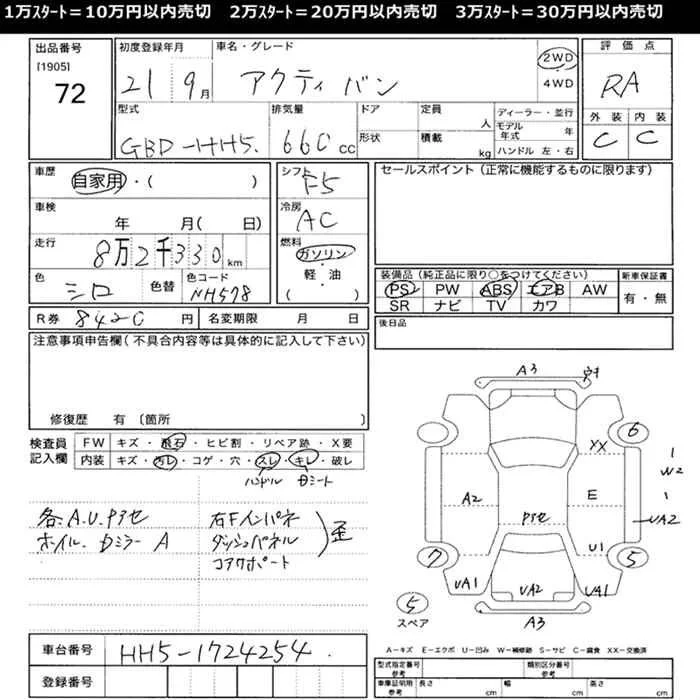 1万スタート=10万円以内売切 2万スタート=20万円以内売切 3万スタート=30万円以内売切
出品番号
[1905]
72
初度登録年月
21 9月
車名・グレード
アクティ バン
2WD
・
4WD
評価点
RA
外装 内装
C C
型式
GBD-HH5.
排気量
660cc
ドア
形状
定員 人
積載 kg
ディーラー・並行
モデル年式 年
ハンドル 左・右
車歴
自家用・( )
車検
年 月( 日)
走行
8万2千330km
色
シロ
色替
色コード
NH578
シフト
F5
冷房
AC
燃料
ガソリン
・
軽・油
( )
セールスポイント(正常に機能するものに限ります)
装備品(純正品に限り○をつけてください)
PS PW ABS エアB AW
SR ナビ TV カワ
新車保証書
有・無
R券 8420円
名変期限 月 日
後日品
注意事項申告欄(不具合内容等は具体的に記入して下さい)
修復歴 有 〔箇所 〕
検査員記入欄
FW キズ・飛石・ヒビ割・リペア跡・X要
内装 キズ・汚レ・コゲ・穴・スレ・キレ・破レ
ハンドル
各A.U.P7セ
ホイル.
A
右Fインパネ
ダッシュパネル
コアサポート
歪
A3
6
XX
W2
A2
E
UA2
U1
7
5
UA1
UA2
UA1
A3
5
スペア
A-キズ E-エクボ U-凹み W-補修跡 S-サビ C-腐食 XX-交換済
車台番号
HH5-1724254
登録番号
型式指定番号 参考
類別区分番号 参考
車庫証明用 参考
長さ cm
幅 cm
高さ cm